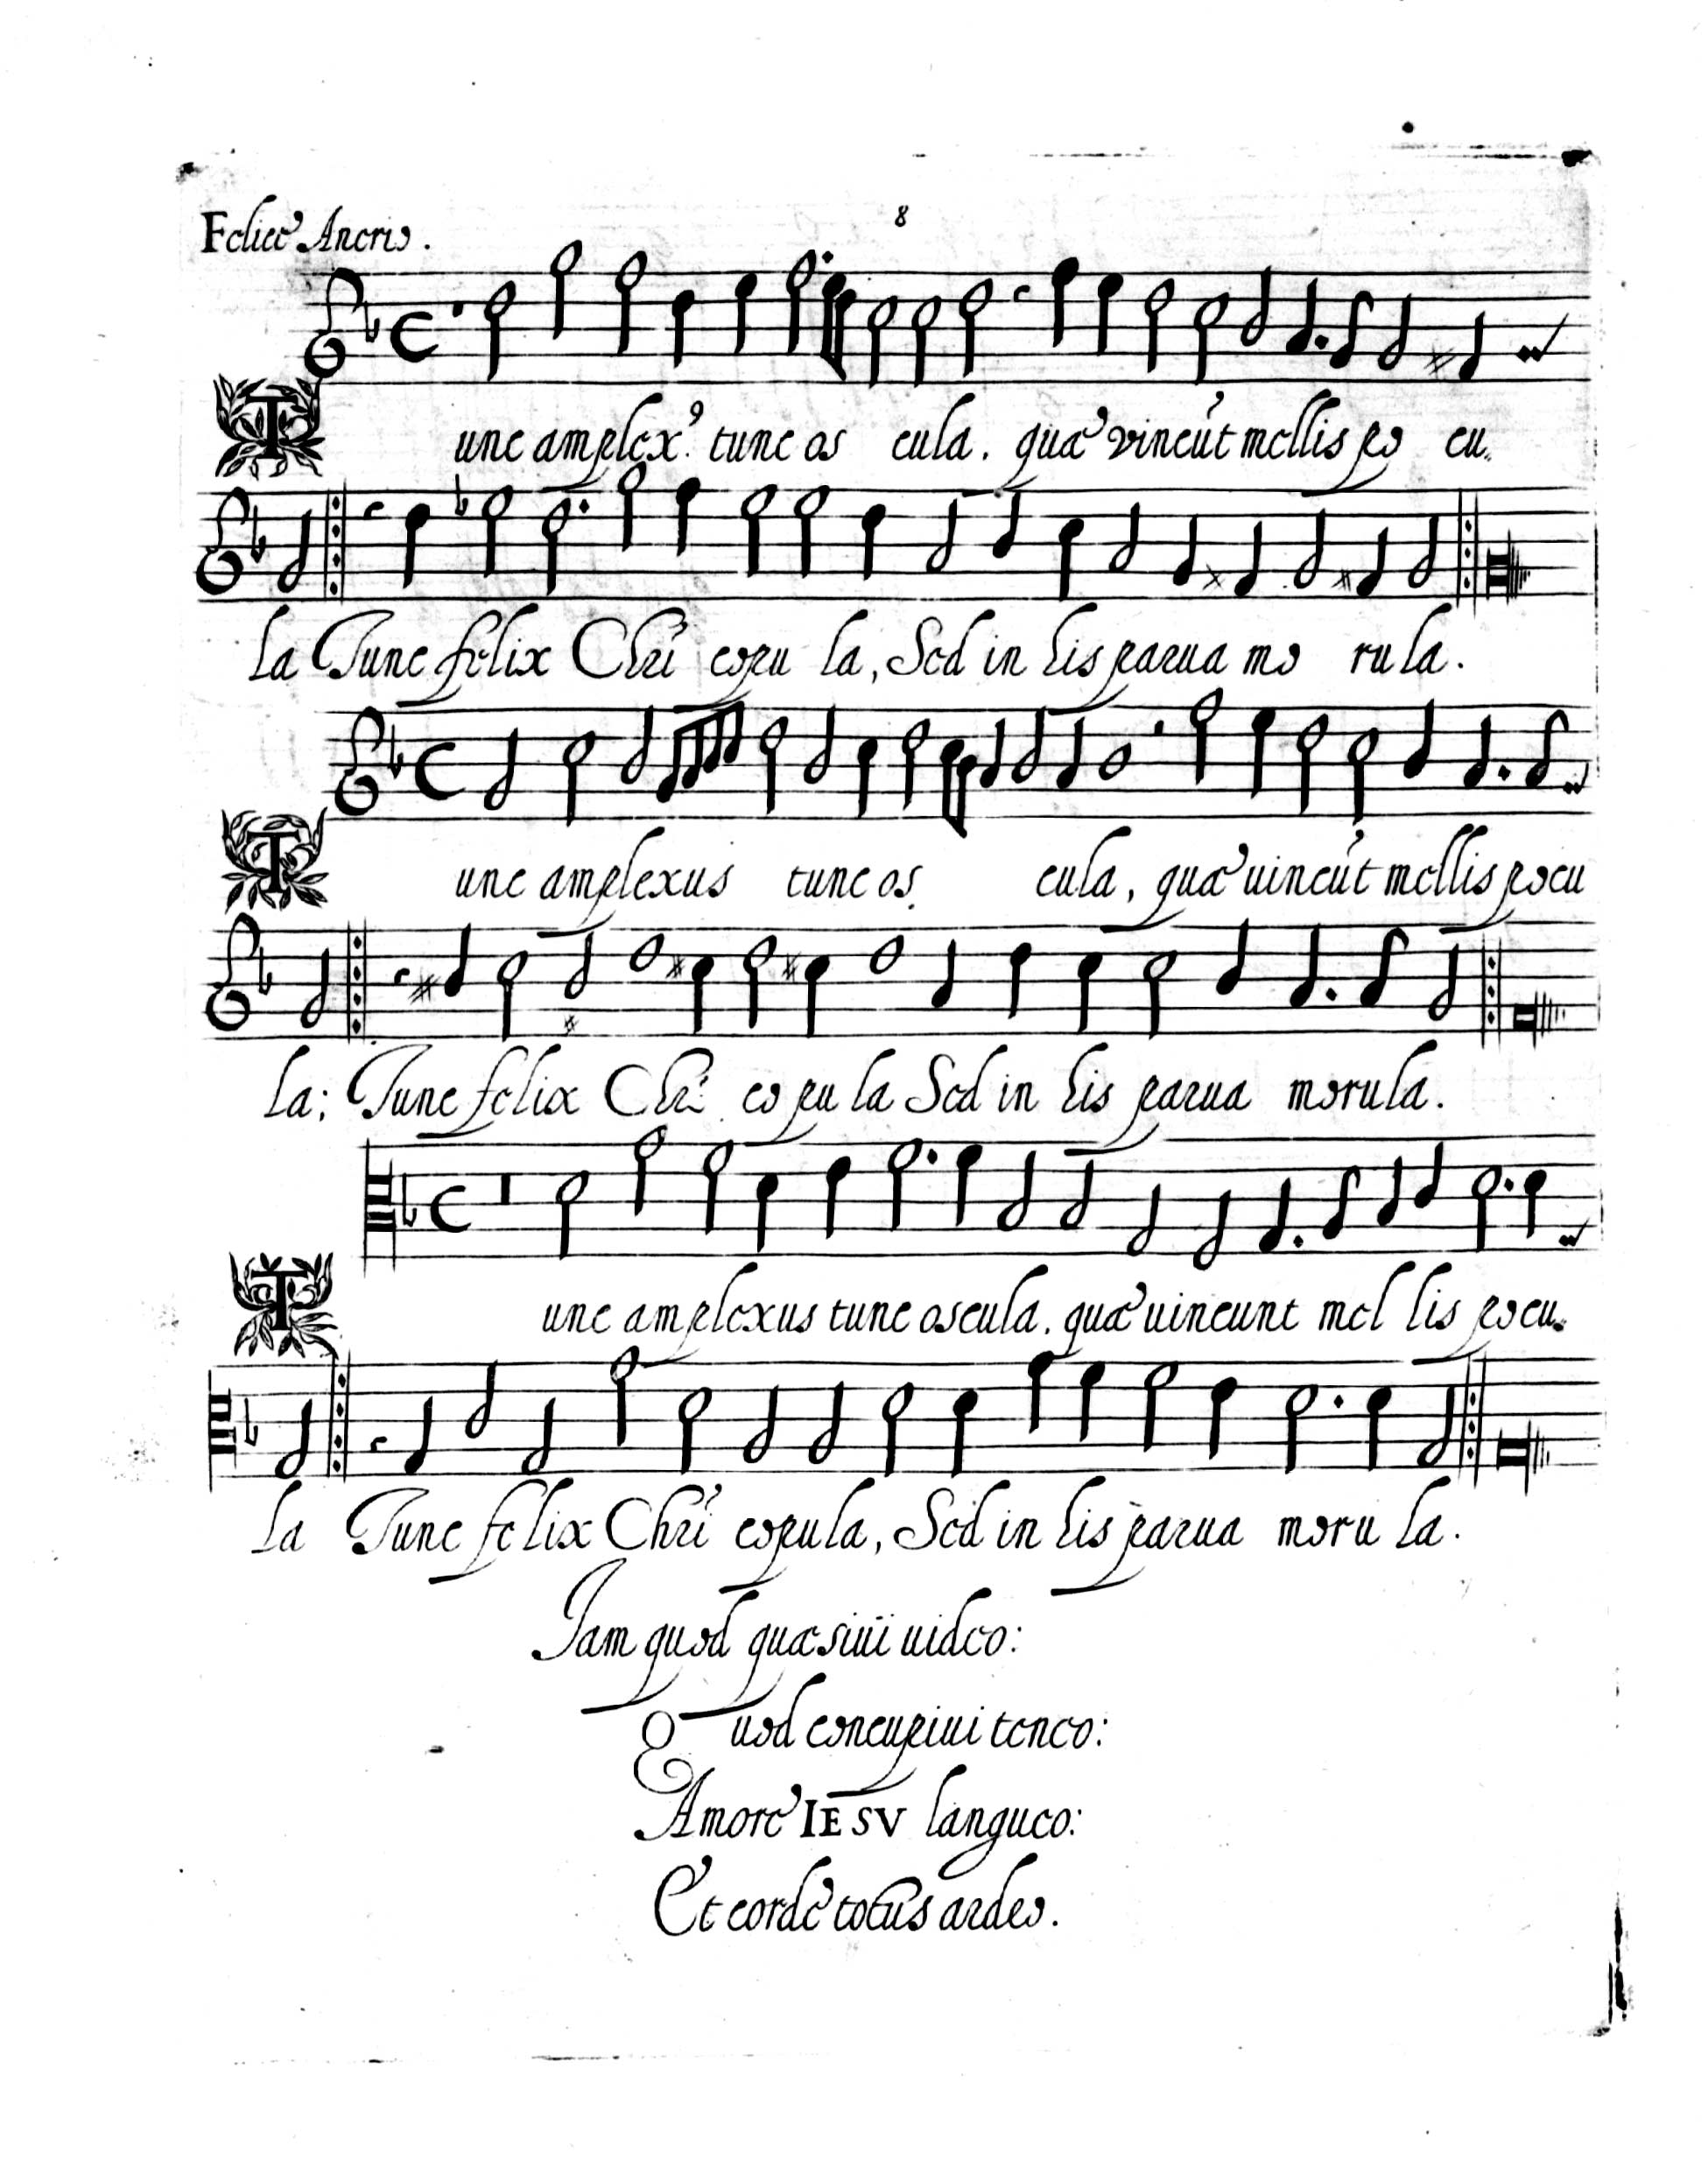 8
Felice Anerio.
T
unc amplex9. tunc os cula. quæ vincu᷃t mellis po cu.
la Tunc felix Chr̃i copu la, Sed in his parua mo ru la.
T
unc amplexus tunc os. cula, quæ uincu᷃t mellis pocu
la; Tunc felix Chr̃i co pu la Sed in his parua morula.
T
unc amplexus tunc oscula. quæ uincunt mel lis pocu.
la Tunc fe lix Chr̃i copula, Sed in his parua moru la.
Iam quod quæsiui uideo:
Quod concupiui teneo:
Amore IESV langueo:
Et corde totus ardeo.